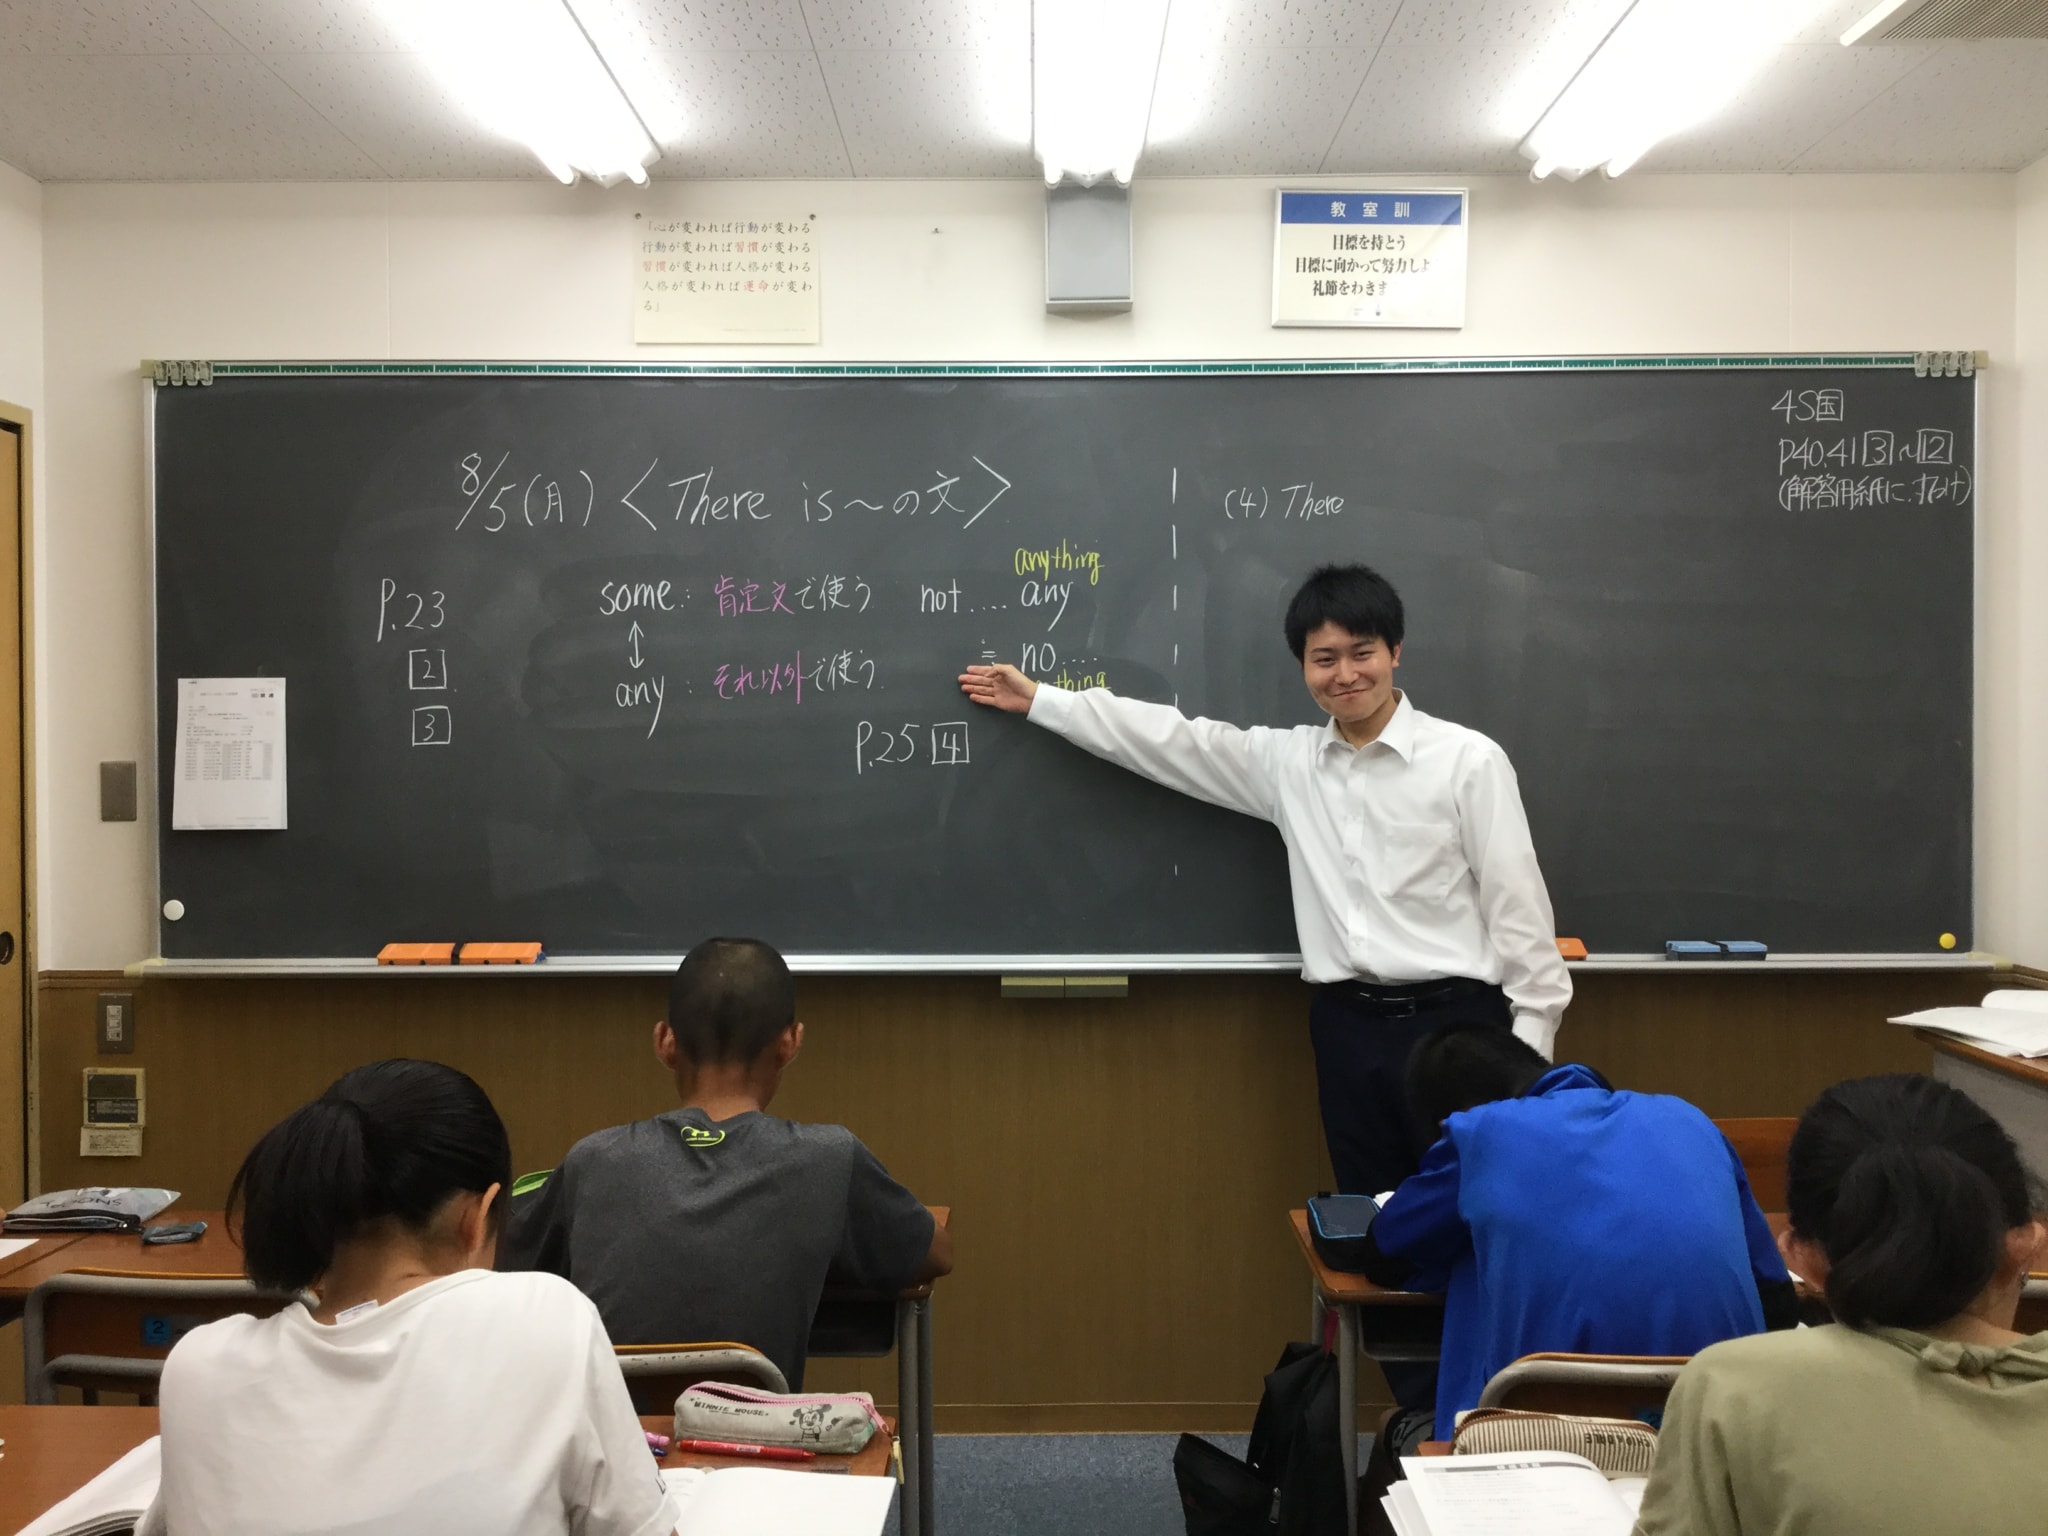 「心が変われば行動が変わる
行動が変われば習慣が変わる
習慣が変われば人格が変わる
人格が変われば運命が変わ
る」
教室訓
目標を持とう
目標に向かって努力しよ
礼節をわきま
8/5(月) <There is～の文>
P.23
2
3
some: 肯定文で使う
↕
any: それ以外で使う
anything
not.... any
≒ no....
thing
P.25 4
(4) There
4S国
P40.41 3～12
(解答用紙に.
SNOOPY
2
MINNIE MOUSE
CHIP & DALE